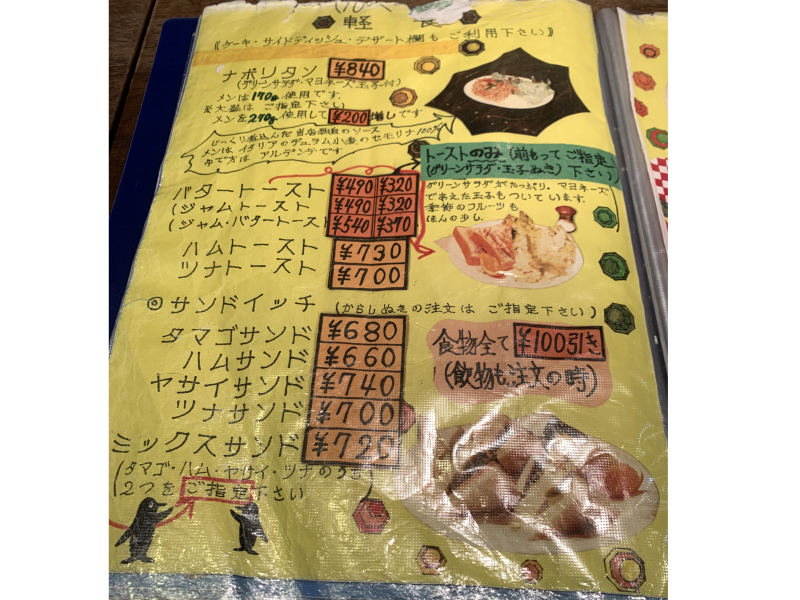 軽食
《ケーキ・サイドディッシュ・デザート欄も ご利用下さい》
ナポリタン ¥840
(グリーンサラダ・マヨネーズ玉子付)
メンは170g使用です。
※大盛は ご指定下さい
メンを270g使用して ¥200増しです
じっくり煮込んだ当店独自のソース
メンは イタリアのデュラム小麦のセモリナ100%
ゆで方は アルデンテです
トーストのみ(前もって ご指定
(グリーンサラダ・玉子ぬき) 下さい)
グリーンサラダがたっぷり、マヨネーズ
であえた玉子もついています。
季節のフルーツも
ほんの少し。
バタートースト ¥490 ¥320
(ジャムトースト ¥490 ¥320
(ジャム・バタートースト ¥540 ¥370
ハムトースト ¥730
ツナトースト ¥700
◎サンドイッチ (からしぬきの注文は ご指定下さい)
タマゴサンド ¥680
ハムサンド ¥660
ヤサイサンド ¥740
ツナサンド ¥700
ミックスサンド
(タマゴ・ハム・ヤサイ・ツナのうち
2つを ご指定下さい
食物全て ¥100引き
(飲物も注文の時)